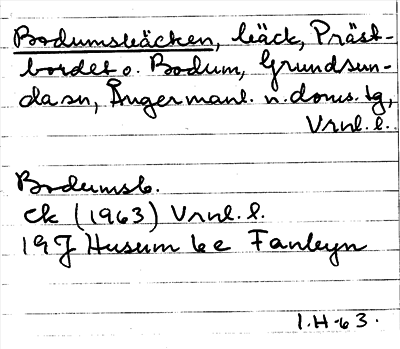 Bodumsbäcken, bäck, Präst-
bordet o. Bodum, Grundsun-
da sn, Ångermanl. n. doms. tg,
Vrnl. l.
Bodumsb.
ek (1963) Vrnl. l.
19J Husum be Fanbyn
1.H-63.